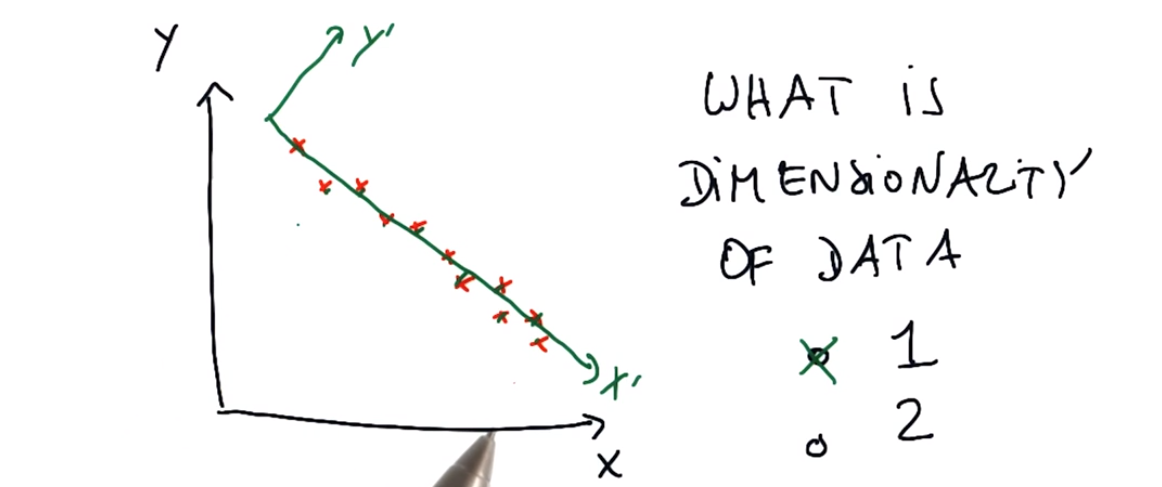 Y
Y'
X'
X
WHAT iS
DiMENSiONALiTY
OF DATA
1
2